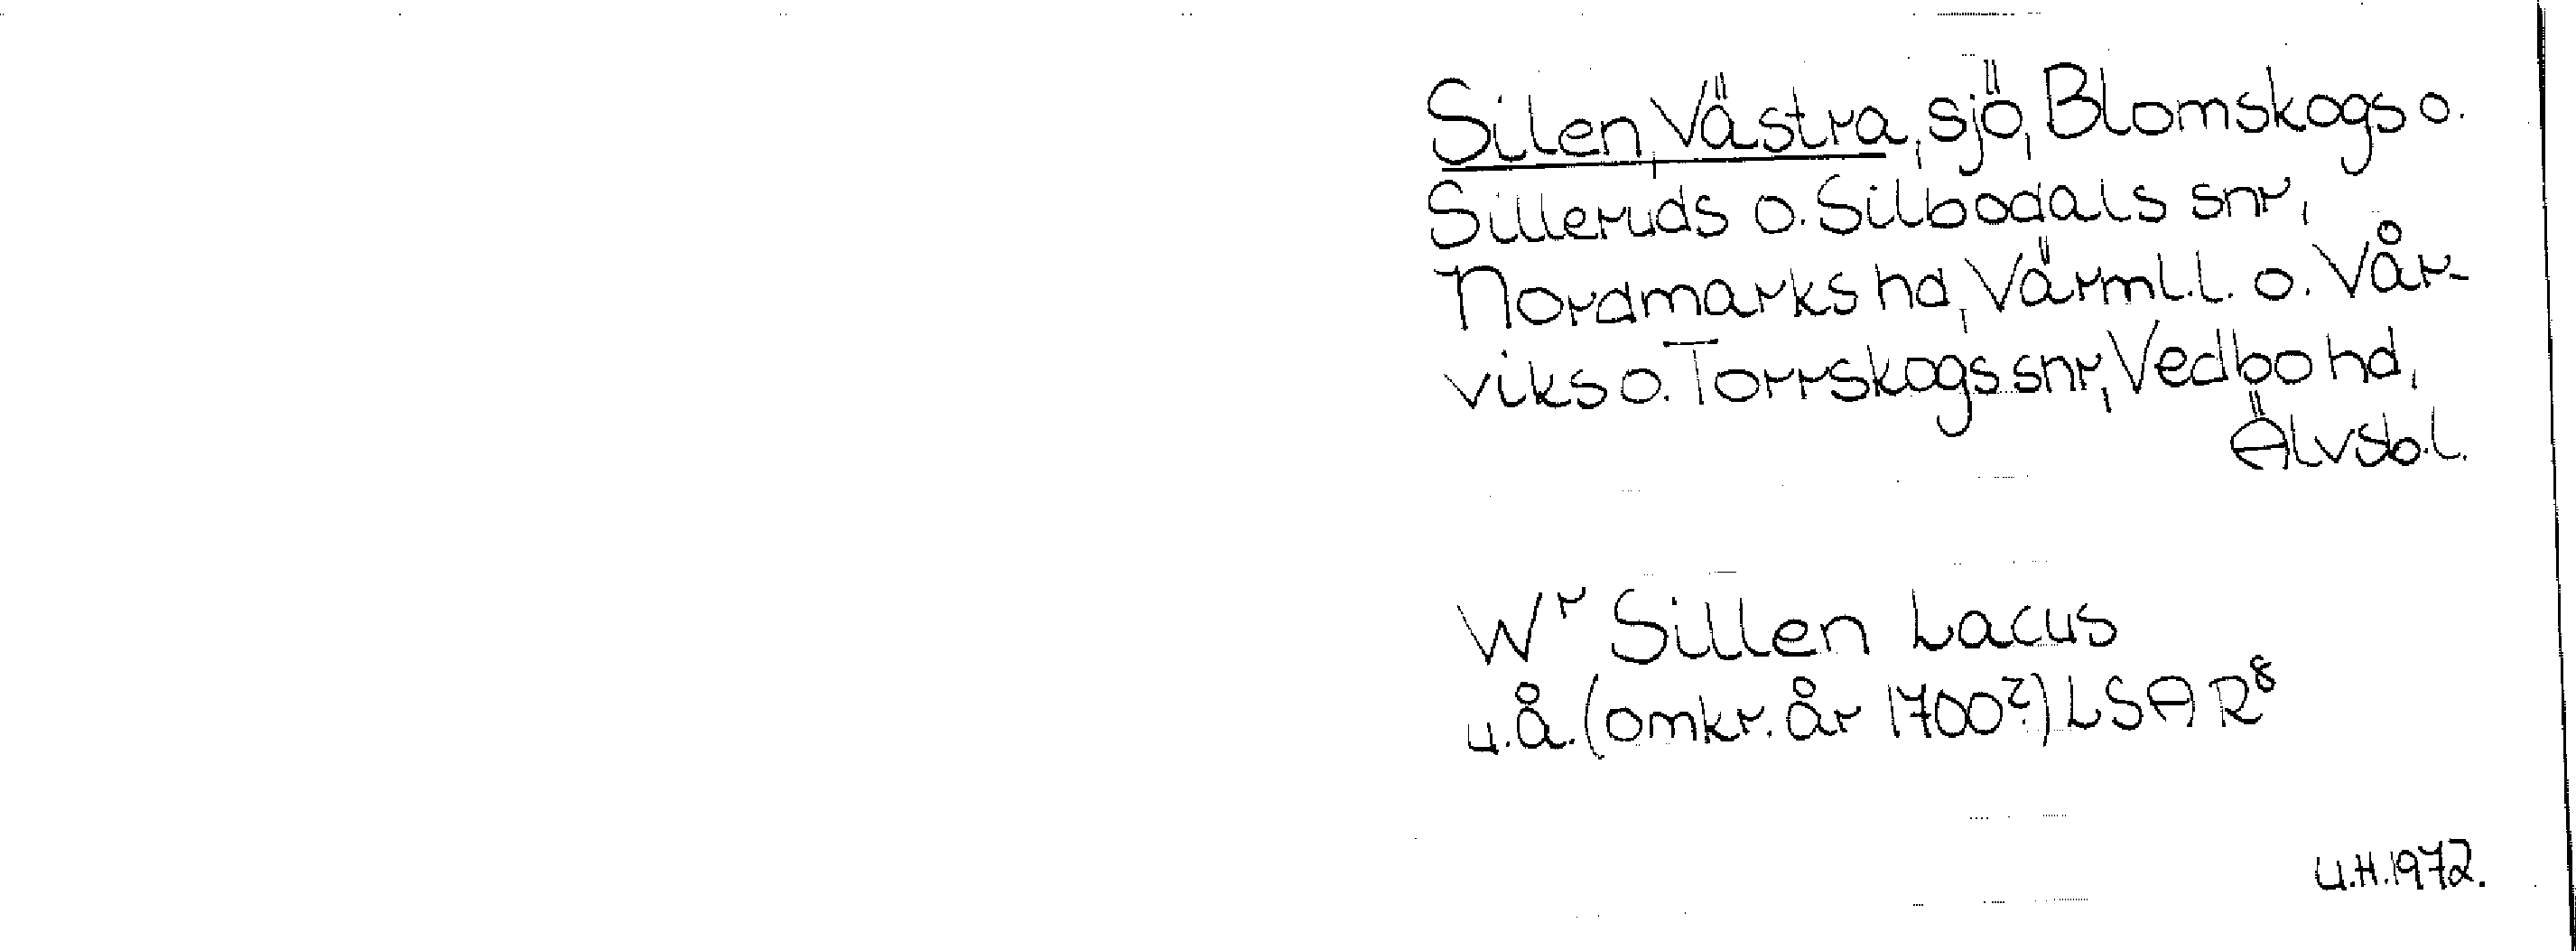 Silen, Västra, sjö, Blomskogs o.
Silleruds o. Silbodals snr,
Nordmarks hd, Värml.l. o. Vår-
viks o. Torrskogs snr, Vedbo hd,
Älvsb.l.
Wʳ Sillen Lacus
u.å. (omkr. år 1700?) LSA R⁸
U.H. 1972.